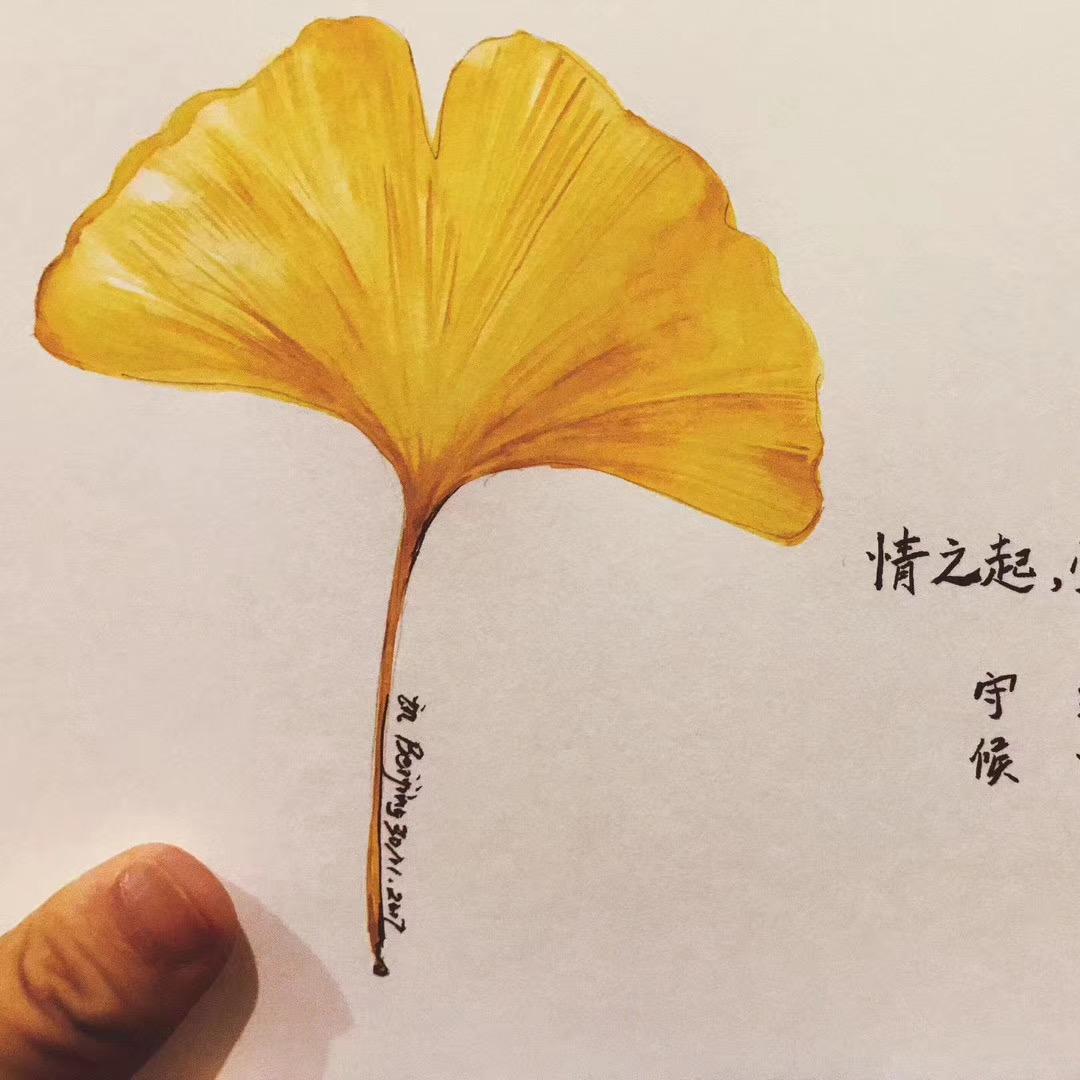 in Beijing 30/11.2017
情之起，
守
候